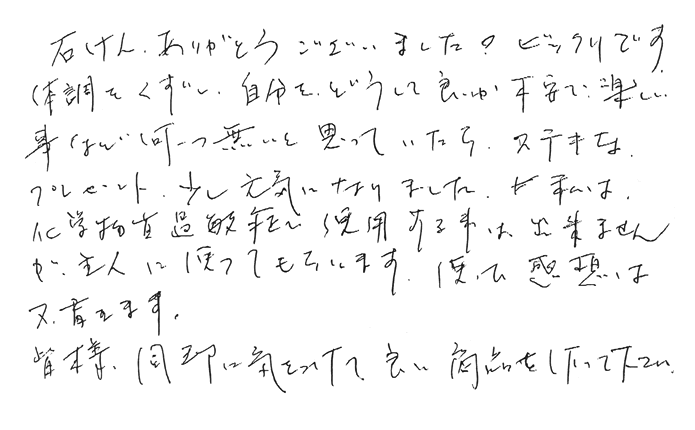 石けん、ありがとうございました。ビックリです
体調をくずし、自分を、どうして良いか不安で、楽しい
事なんて何一つ無いと思っていたら、ステキな、
プレゼント、少し元気になりました。が私は、
化学物質過敏症で使用する事は、出来ません
が、主人に使ってもらいます。使った感想は
又、書きます。
皆様、お体に気をつけて、良い商品を作って下さい。